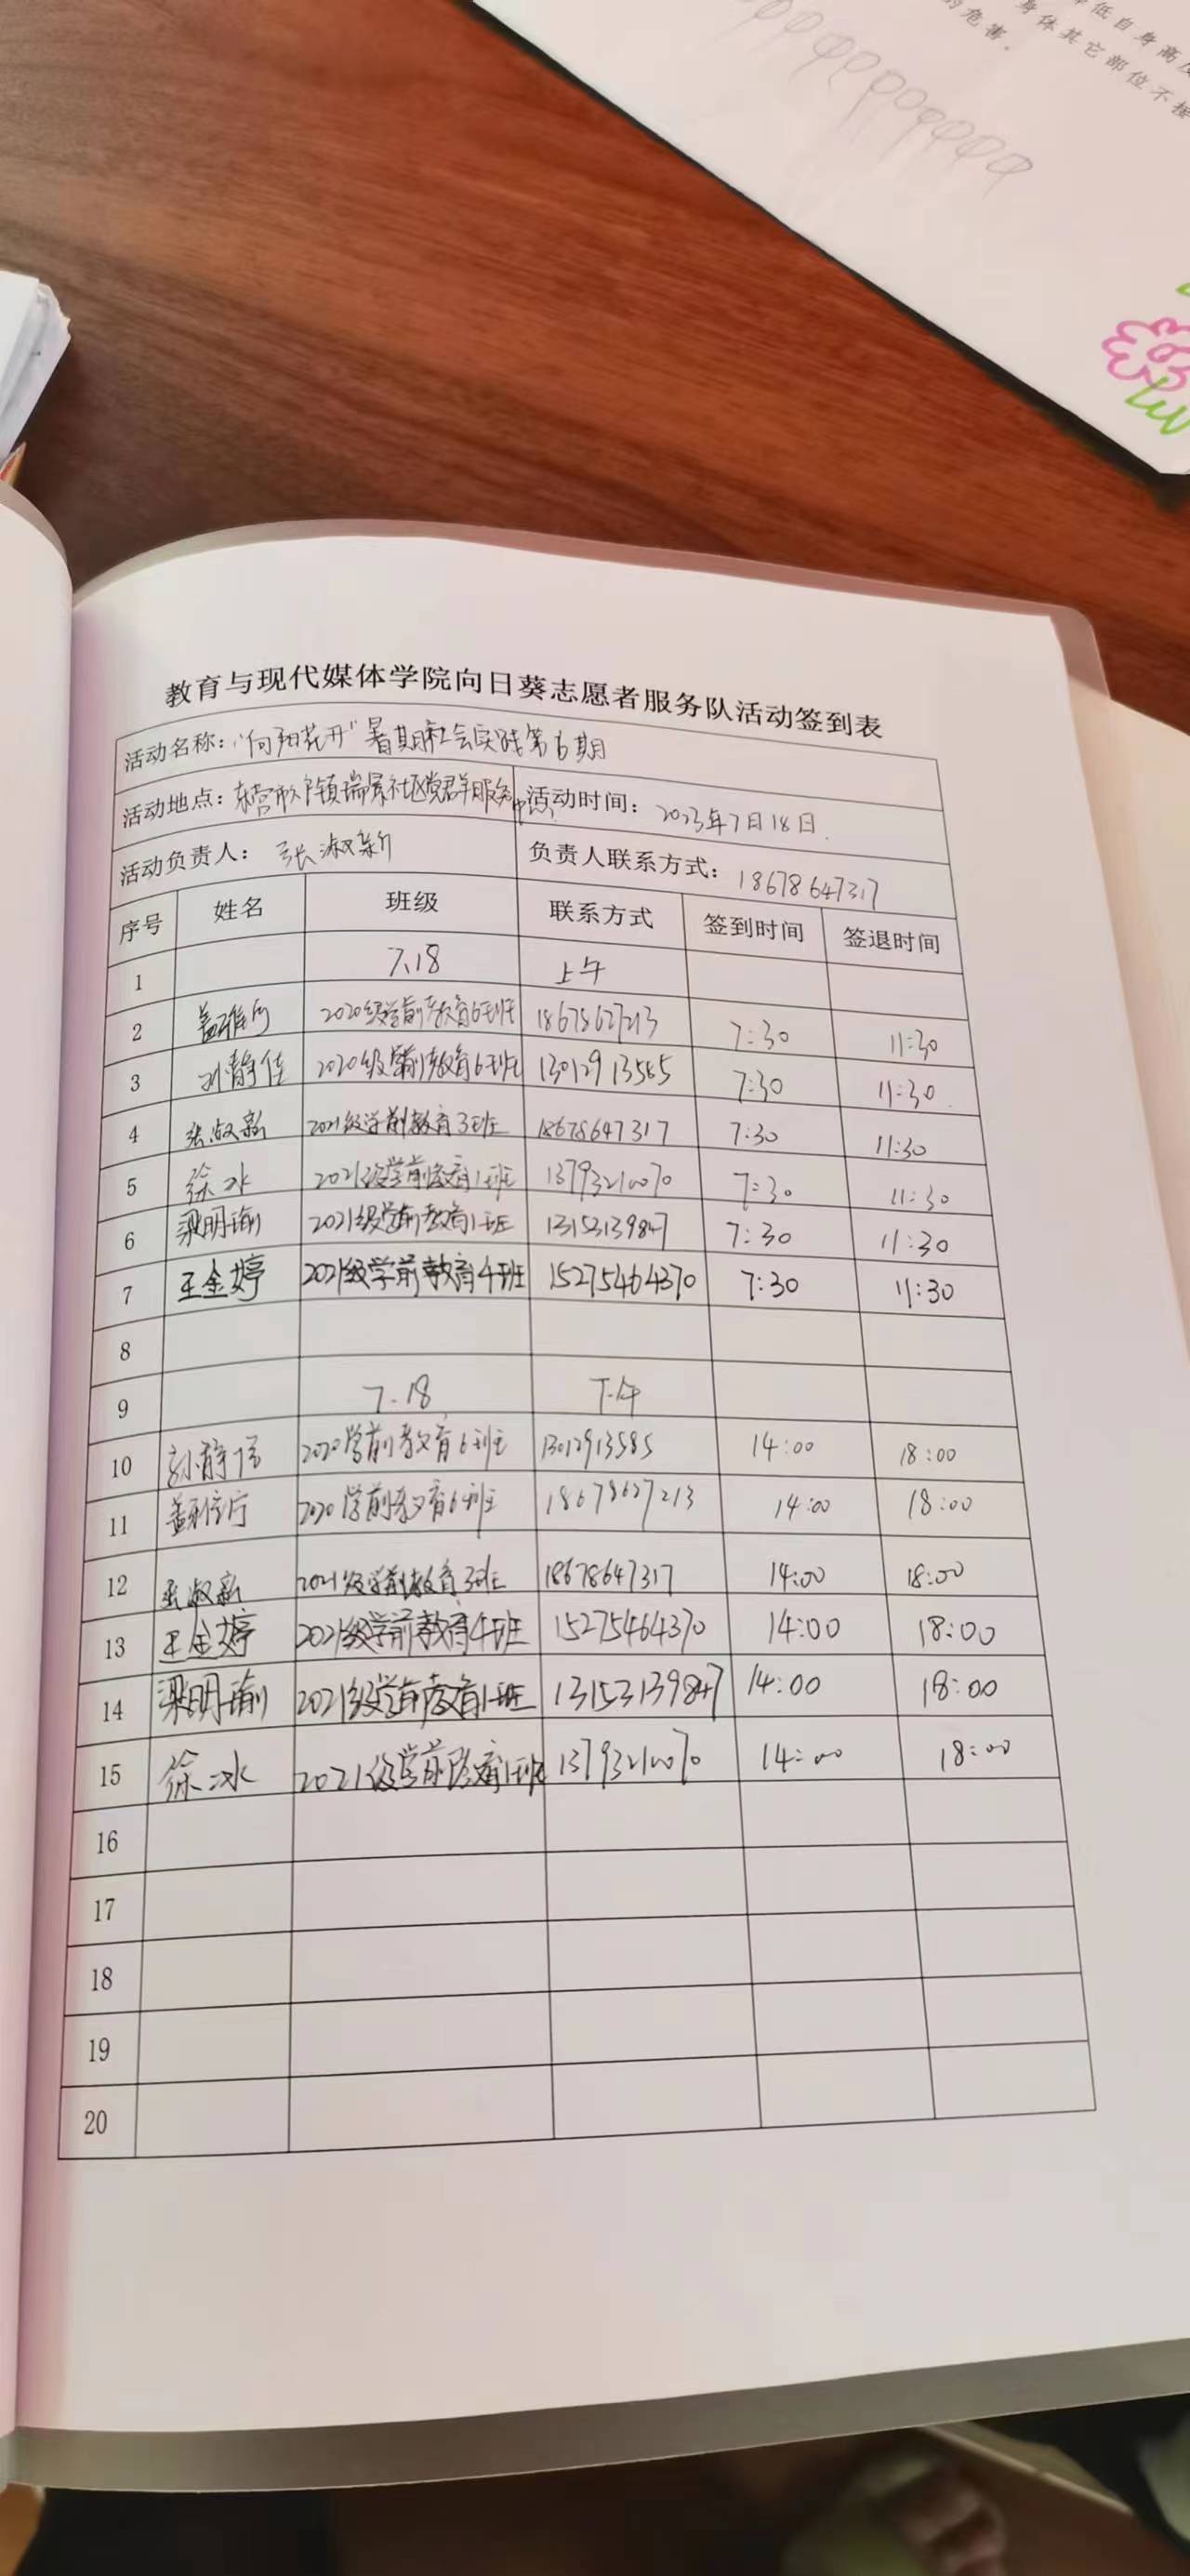 低自身高度
身体其它部位不接
的危害。
教育与现代媒体学院向日葵志愿者服务队活动签到表
活动名称：“向阳花开”暑期社会实践第6期
活动地点：东营市 镇瑞景社区党群服务中心 活动时间：2023年7月18日.
活动负责人：张淑新 负责人联系方式：18678647317
序号 姓名 班级 联系方式 签到时间 签退时间
1 7.18 上午
2 2020级学前教育6班 18678627213 7:30 11:30
3 刘静佳 2020级学前教育6班 13012913585 7:30 11:30
4 张淑新 2021级学前教育3班 18678647317 7:30 11:30
5 徐冰 2021级学前教育1班 13793210070 7:30 11:30
6 梁明瑜 2021级学前教育1班 13153139847 7:30 11:30
7 王金婷 2021级学前教育4班 15275464370 7:30 11:30
8
9 7.18 下午
10 刘静佳 2020学前教育6班 13012913585 14:00 18:00
11 2020学前教育6班 18678627213 14:00 18:00
12 张淑新 2021级学前教育3班 18678647317 14:00 18:00
13 王金婷 2021级学前教育4班 15275464370 14:00 18:00
14 梁明瑜 2021级学前教育1班 13153139847 14:00 18:00
15 徐冰 2021级学前教育1班 13793210070 14:00 18:00
16
17
18
19
20